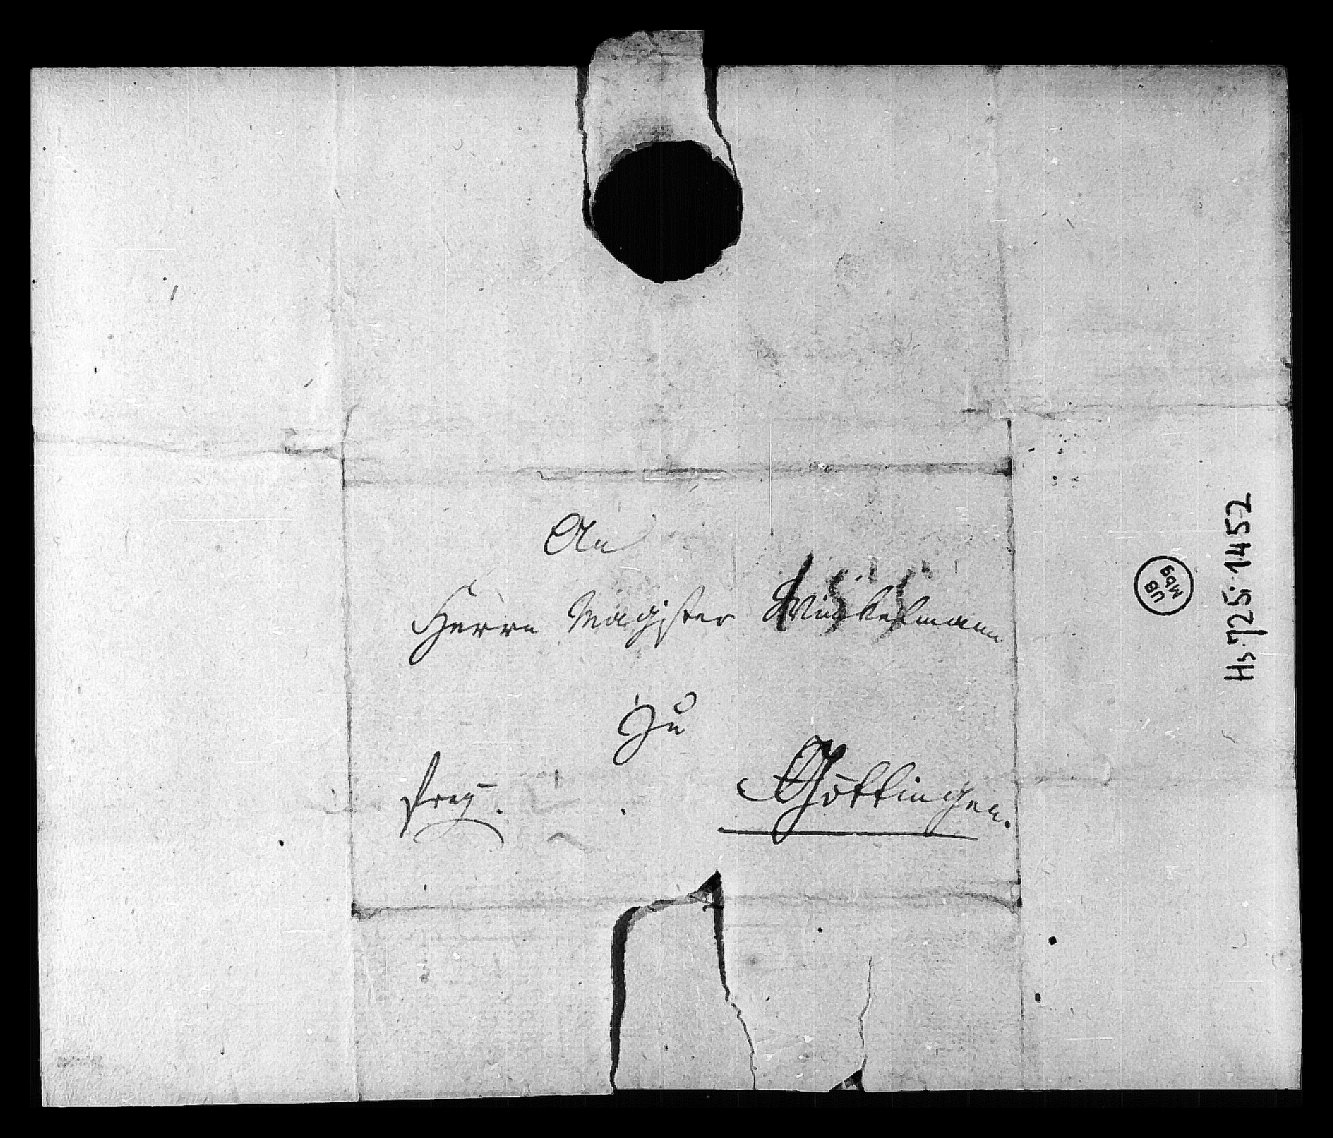 An
Herrn Magister Winkelmann
zu
frey.
Göttingen.
UB
Mbg
Hs 725:1452